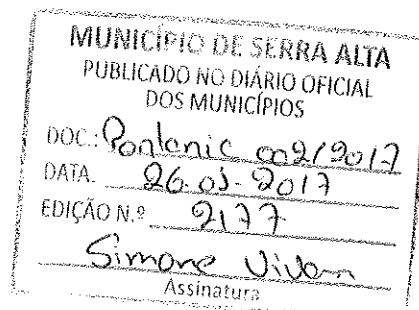 MUNICÍPIO DE SERRA ALTA
PUBLICADO NO DIÁRIO OFICIAL
DOS MUNICÍPIOS
DOC.: 002/2017
DATA. 26.01.2017
EDIÇÃO N.º 2177
Simone
Assinatura